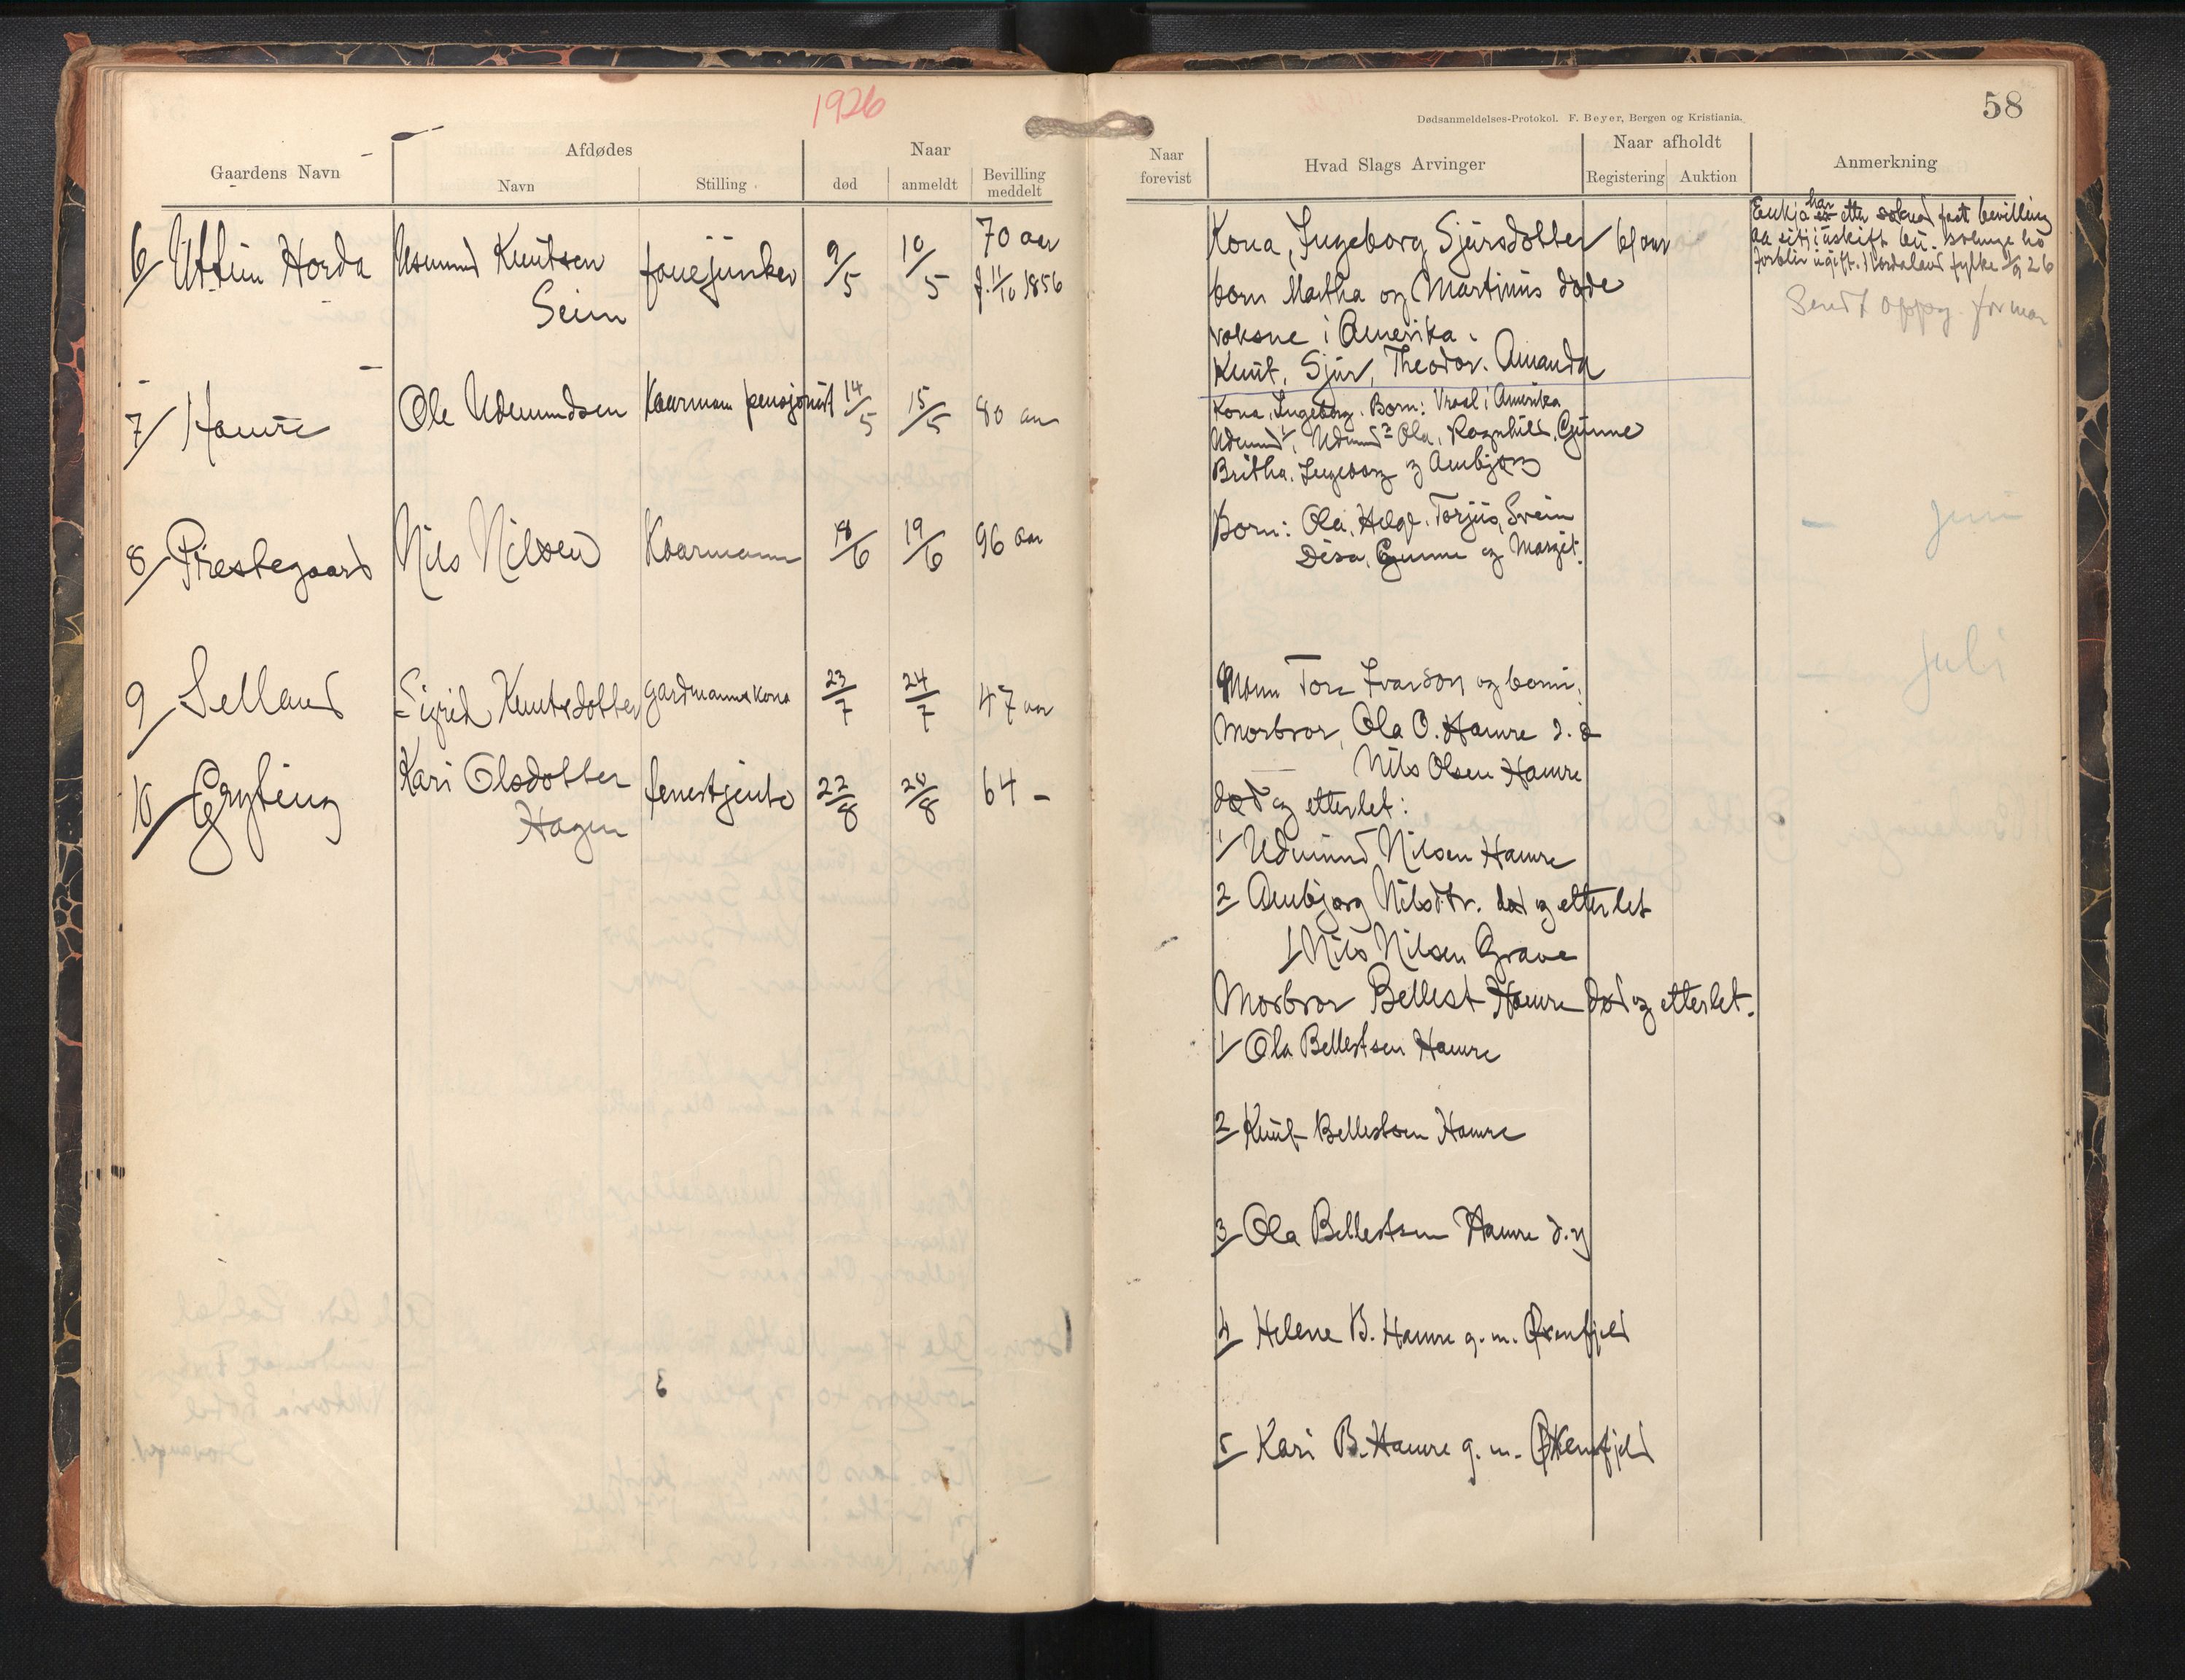 1926
58
Dødsanmeldelses-Protokol. F. Beyer, Bergen og Kristiania.
Gaardens Navn
Afdødes
Navn
Stilling
Naar
død
anmeldt
Bevilling meddelt
Naar forevist
Hvad Slags Arvinger
Naar afholdt
Registering
Auktion
Anmerkning
6/ Horda
Asmund Knutsen
Seim
9/5
10/5
70 aar
f. 11/10 1856
Kona, Ingeborg Sjursdotter 61 aar
born Martha og Martinus døde
voksne i Amerika.
Knut, Sjur, Theodor. Amanda
Enkja har etter soknad faat bevilling
aa sitj i uskift bu. so lenge ho
forblir ugift. Hordaland fylke 1/9 26
Sendt oppg. for mai
7/ Hamre
Ole Udmundsen
Kaarmann pensjonist
14/5
15/5
80 aar
Kona, Ingeborg. Born: i Amerika
Udmund 1, Udmund 2 Ola, Ragnhild, Gunne
Britha, Ingeborg og Ambjorg
8/ Prestegaard
Nils Nilsen
Kaarmann
18/6
19/6
96 aar
Born: Ola, Helge, Torjus, Svein
Disa, Gunne og Margit.
juni
9/ Selland
Sigrid Knutsdotter
gardmannskona
23/7
24/7
47 aar
Mann Tore Ivarson og born.
juli
10/ Gryting
Kari Olsdotter
Hagen
22/8
64 -
Morbror, Ola O. Hamre d. e
Nils Olsen Hamre
død og etterlet:
1/ Udmund Nilsen Hamre
2/ Ambjorg Nilsdtr. død og etterlet
1/ Nils Nilsen Grave
Morbror Bellest Hamre død og etterlet.
1/ Ola Bellestsen Hamre
2/ Knut Bellestsen Hamre
3/ Ola Bellestsen Hamre d.y
4/ Helene B. Hamre g. m.
5/ Kari B. Hamre g. m.